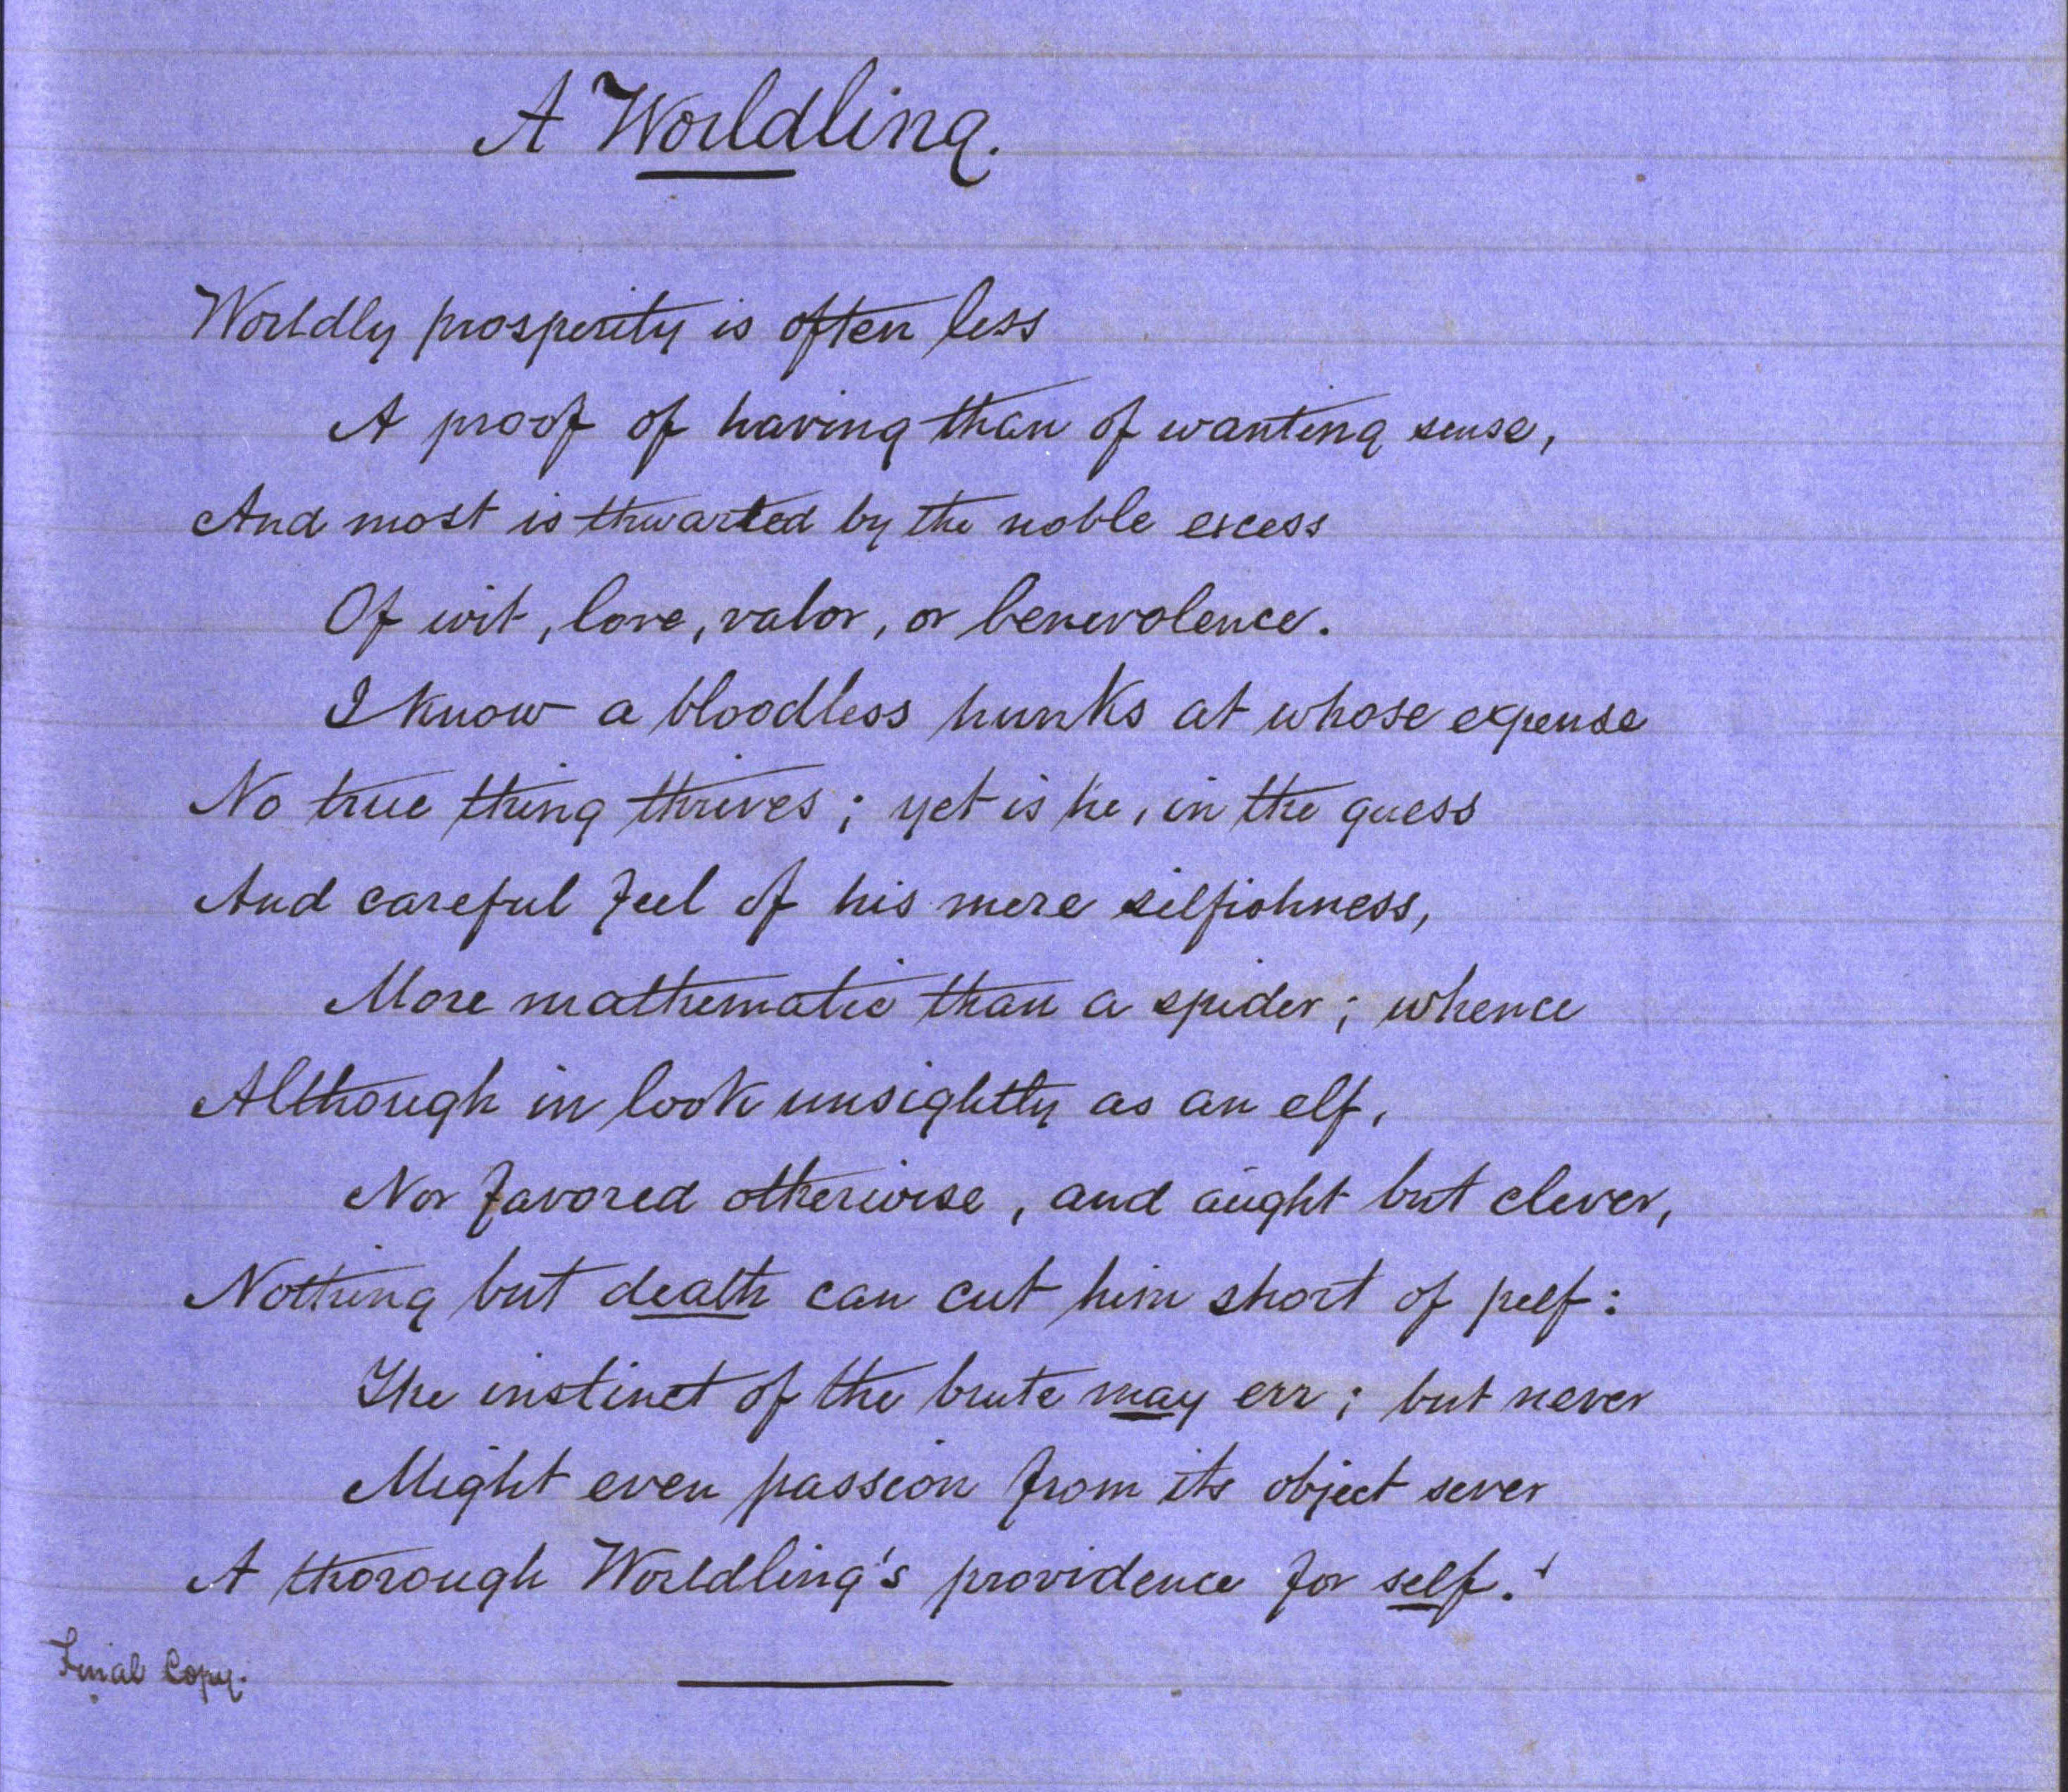 A Worldling.
Worldly prosperity is often less
A proof of having than of wanting sense,
And most is thwarted by the noble excess
Of wit, love, valor, or benevolence.
I know a bloodless hunks at whose expense
No true thing thrives; yet is he, in the guess
And careful feel of his mere selfishness,
More mathematic than a spider; whence
Although in look unsightly as an elf,
Nor favored otherwise, and aught but clever,
Nothing but death can cut him short of pelf:
The instinct of the brute may err; but never
Might even passion from its object sever
A thorough Worldling's providence for self.
Final Copy.